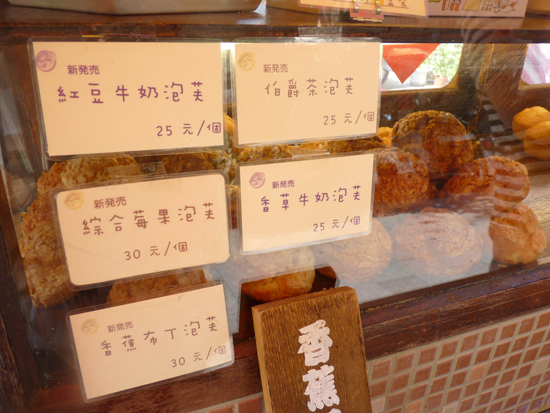 新発売
紅豆牛奶泡芙
25元/個
新発売
伯爵茶泡芙
25元/個
新発売
綜合莓果泡芙
30元/個
新発売
香草牛奶泡芙
25元/個
新発売
香蕉布丁泡芙
30元/個
香蕉